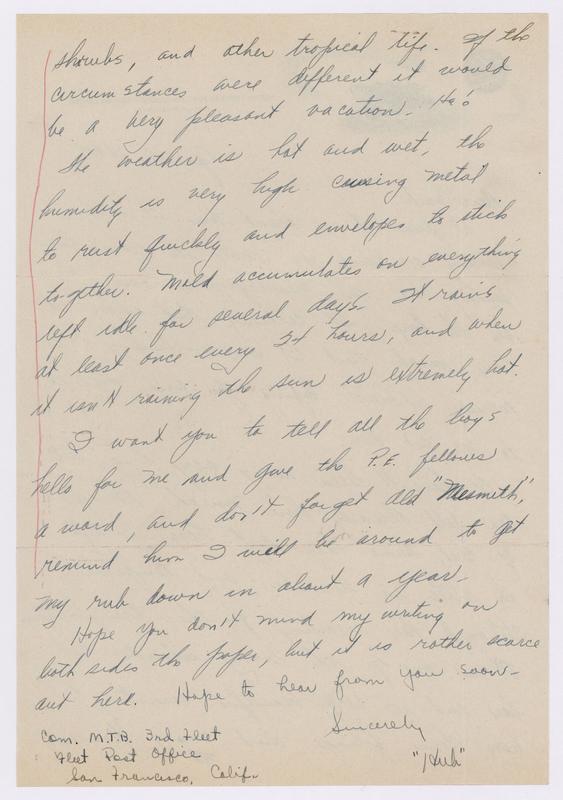 shrubs, and other tropical life. If the
circumstances were different it would
be a very pleasant vacation. Ha!
The weather is hot and wet, the
humidity is very high causing metal
to rust quickly and envelopes to stick
to-gether. Mold accumulates on everything
left idle for several days. It rains
at least once every 24 hours, and when
it isn't raining the sun is extremely hot.
I want you to tell all the boys
hello for me and give the P.E. fellows
a word, and don't forget old "Nesmith",
remind him I will be around to get
my rub down in about a year.
Hope you don't mind my writing on
both sides the paper, but it is rather scarce
out here. Hope to hear from you soon.
Sincerely
"Hub"
Com. M.T.B. 3rd Fleet
Fleet Post Office
San Francisco, Calif.